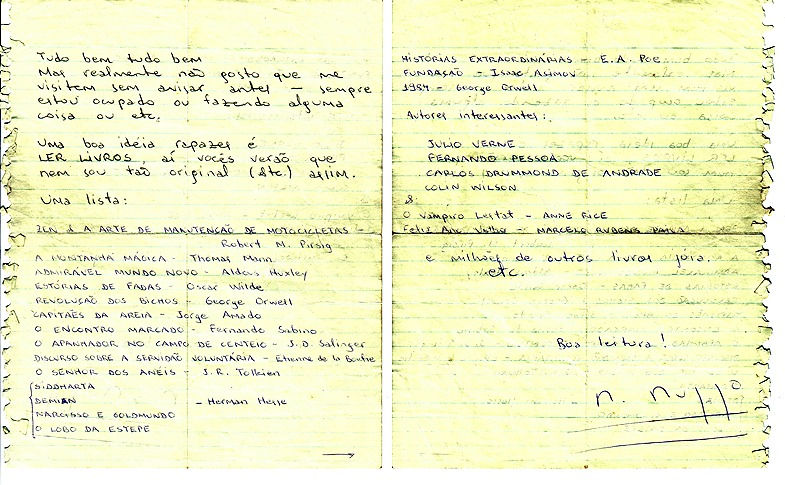 Tudo bem tudo bem
Mas realmente não gosto que me
visitem sem avisar antes — sempre
estou ocupado ou fazendo alguma
coisa ou etc.
Uma boa idéia rapazes é
LER LIVROS aí vocês verão que
nem sou tão original (&tc.) assim.
Uma lista:
ZEN & A ARTE DE MANUTENÇÃO DE MOTOCICLETAS -
Robert M. Pirsig
A MONTANHA MÁGICA - Thomas Mann
ADMIRÁVEL MUNDO NOVO - Aldous Huxley
ESTÓRIAS DE FADAS - Oscar Wilde
REVOLUÇÃO DOS BICHOS - George Orwell
CAPITÃES DA AREIA - Jorge Amado
O ENCONTRO MARCADO - Fernando Sabino
O APANHADOR NO CAMPO DE CENTEIO - J.D. Salinger
DISCURSO SOBRE A SERVIDÃO VOLUNTÁRIA - Etienne de la Boétie
O SENHOR DOS ANÉIS - J.R. Tolkien
SIDDHARTA
DEMIAN - Herman Hesse
NARCISSO E GOLDMUNDO
O LOBO DA ESTEPE
HISTÓRIAS EXTRAORDINÁRIAS - E.A. POE
FUNDAÇÃO - ISAAC ASIMOV
1984 - George Orwell
Autores interessantes:
JULIO VERNE
FERNANDO PESSOA
CARLOS DRUMMOND DE ANDRADE
COLIN WILSON
&:
O Vampiro Lestat - ANNE RICE
Feliz Ano Velho - MARCELO RUBENS PAIVA
e milhões de outros livros jóia.
etc.
Boa leitura!